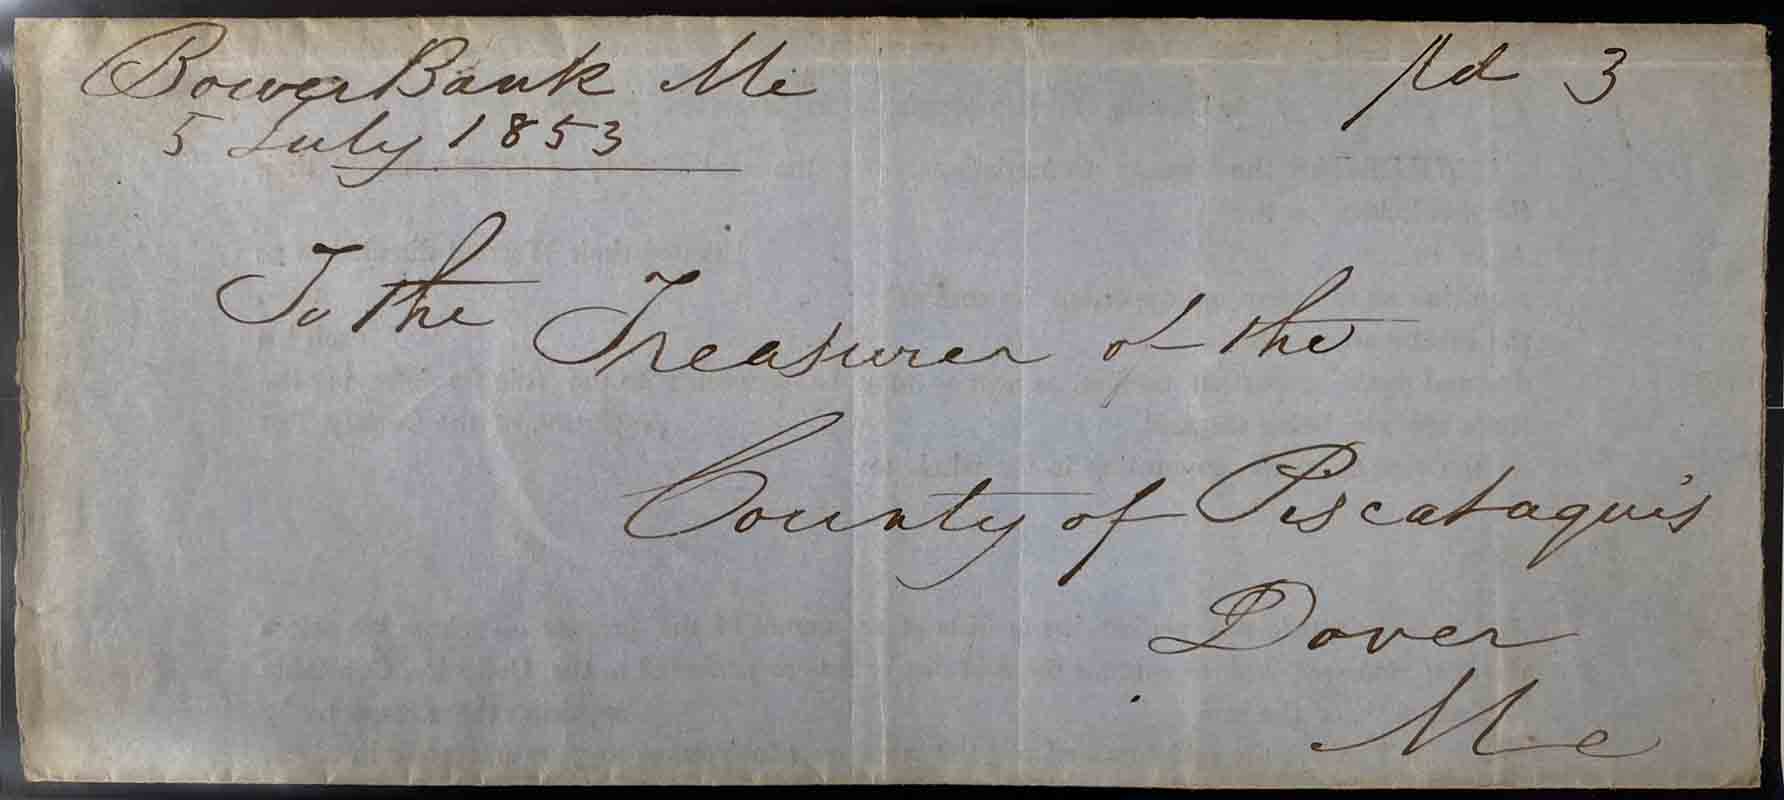 BowerBank Me
Pd 3
5 July 1853
To the Treasurer of the
County of Piscataquis
Dover
Me